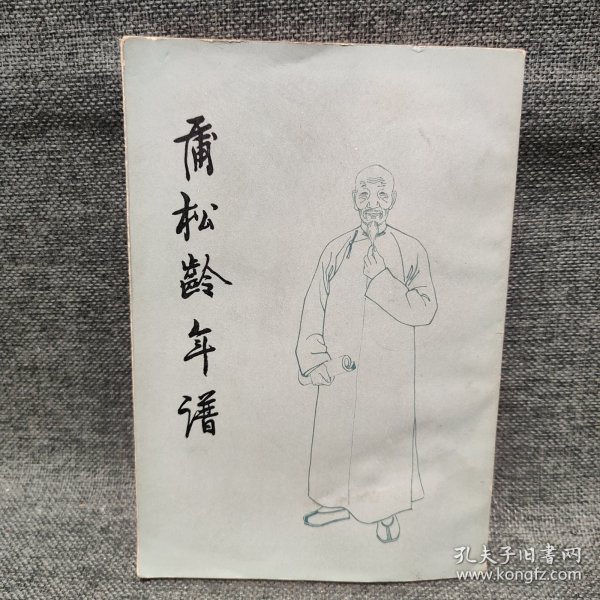 蒲松龄年谱
孔夫子旧書网
www.kongfz.com